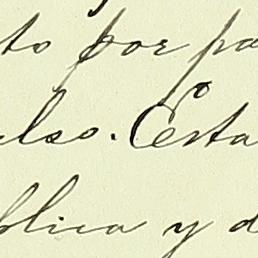 to por pa
also. Esta
blica y d